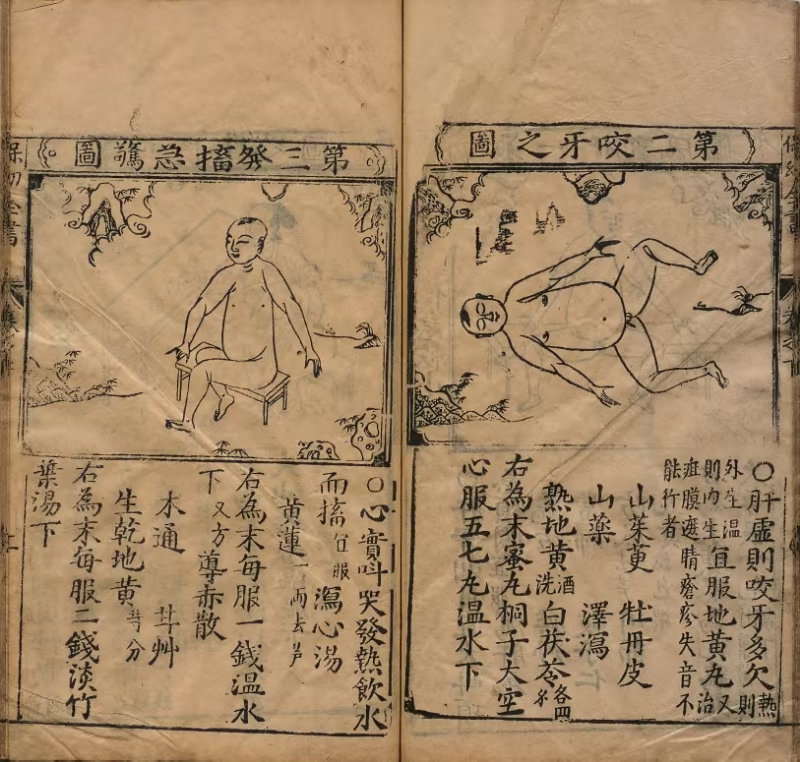 第二咬牙之圖
○肝虛則咬牙多欠熱則
外生溫則內生宜服地黃丸又治
疳膜遮睛瘡疹失音不
能行者
山茱萸 牡丹皮
山藥 澤瀉
熟地黃酒洗 白茯苓各四
右為末蜜丸桐子大空
心服五七丸溫水下
第三發搐急驚圖
○心實叫哭發熱飲水
而搐宜服 瀉心湯
黃蓮一兩去芦
右為末每服一錢溫水
下又方導赤散
木通 甘艸
生乾地黃等分
右為末每服二錢淡竹
葉湯下
保幼全書